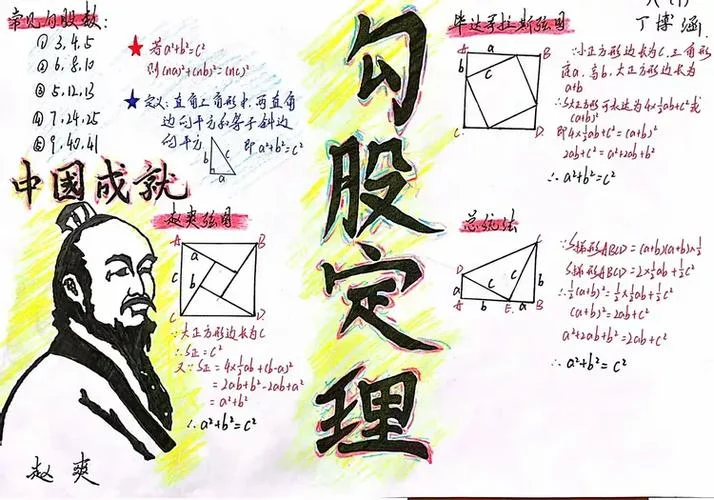 常见勾股数:
① 3,4,5
② 6,8,10
③ 5,12,13
④ 7,24,25
⑤ 9,40,41
★ 若a²+b²=c²
则(na)²+(nb)²=(nc)²
★ 定义:直角三角形中,两直角
边的平方和等于斜边
的平方 即a²+b²=c²
b
c
a
中國成就
赵爽弦图
A
B
a
c
b
C
D
∵大正方形边长为c
∴S正=c²
又∵S正=4×½ab+(b-a)²
=2ab+b²-2ab+a²
=a²+b²
∴a²+b²=c²
赵爽
勾股定理
丁博涵
毕达哥拉斯弦图
A
a
B
b
c
C
D
∵小正方形边长为c,三角形
底a,高b,大正方形边长为
a+b
∴S大正方形可表达为4×½ab+c²或
(a+b)²
即4×½ab+c²=(a+b)²
2ab+c²=a²+2ab+b²
∴a²+b²=c²
总统法
C
D
a
c
c
b
A
b
E
a
B
∵S梯形ABCD=(a+b)(a+b)×½
S梯形ABCD=2×½ab+½c²
∴½(a+b)²=½×½ab+½c²
(a+b)²=2ab+c²
a²+2ab+b²=2ab+c²
∴a²+b²=c²